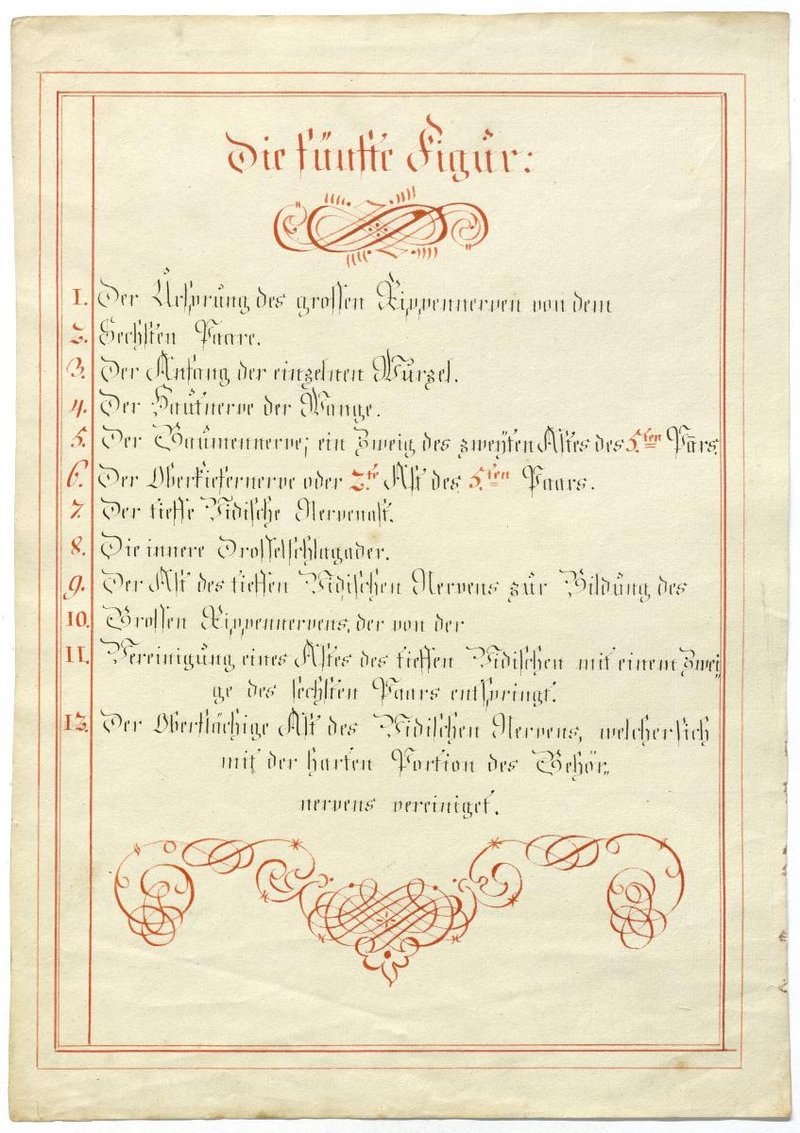 Die fünfte Figur:
1. Der Ursprung des grossen Rippennerven von dem
2. Sechsten Paare.
3. Der Anfang der einzelnen Wurzel.
4. Der Hautnerve der Wange.
5. Der Gaumennerve; ein Zweig des zweyten Astes des 5.ten Pārs.
6. Der Oberkiefernerve oder 2.te Ast des 5.ten Paars.
7. Der tieffe Vidische Nervenast.
8. Die innere Drosselschlagader.
9. Der Ast des tieffen Vidischen Nervens zur Bildung des
10. Grossen Rippennervens, der von der
11. Vereinigung eines Astes des tieffen Vidischen mit einem Zwei„
ge des sechsten Paars entspringt.
12. Der Oberflächige Ast des Vidischen Nervens, welcher sich
mit der harten Portion des Gehör„
nervens vereiniget.